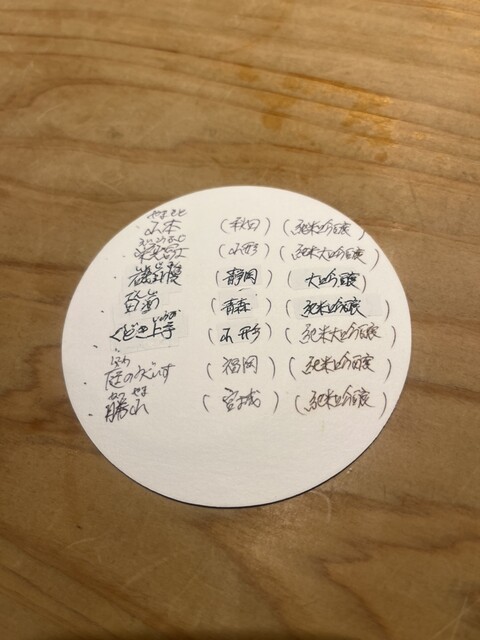 やまもと
山本 (秋田) (純米吟醸)
栄光冨士 (山形) (純米大吟醸)
磯自慢 (静岡) (大吟醸)
(青森) (純米吟醸)
じょうず
くどき上手 (山形) (純米大吟醸)
にわ
庭のうぐいす (福岡) (純米吟醸)
かつ やま
勝山 (宮城) (純米吟醸)